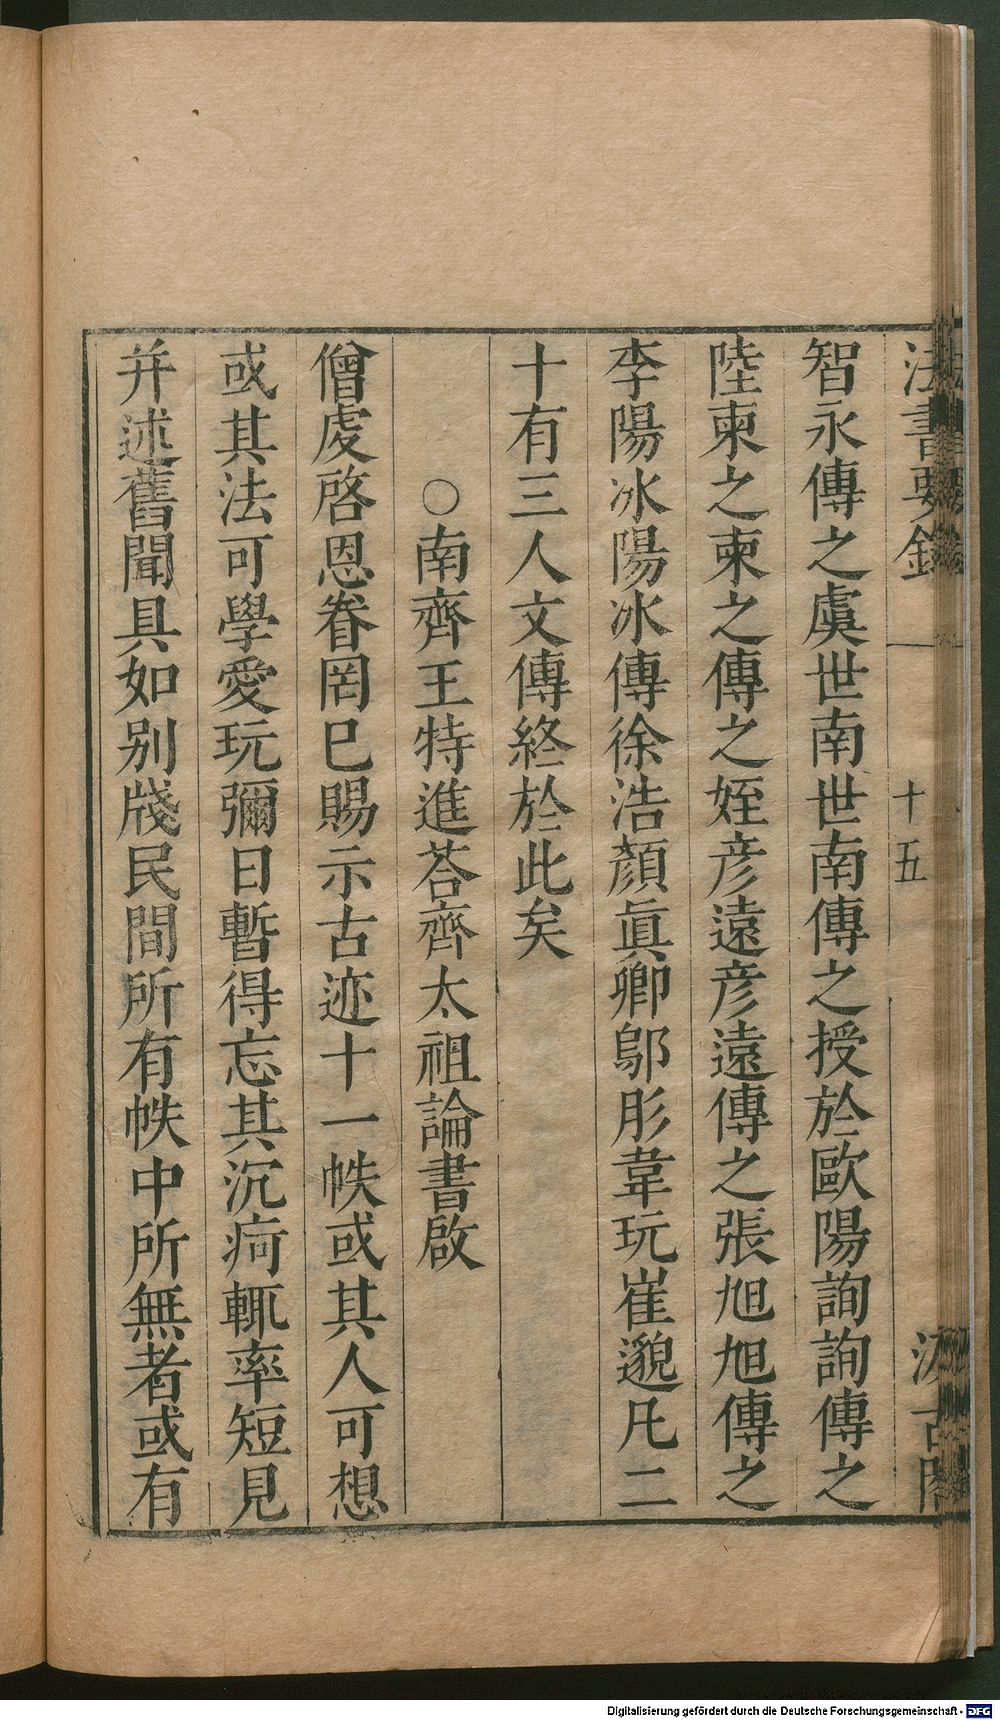 法書要錄
一
十五
汲古閣
智永傳之虞世南世南傳之授於歐陽詢詢傳之
陸柬之柬之傳之姪彥遠彥遠傳之張旭旭傳之
李陽冰陽冰傳徐浩顏眞卿鄔彤韋玩崔邈凡二
十有三人文傳終於此矣
○南齊王特進荅齊太祖論書啟
僧虔啓恩眷罔已賜示古迹十一帙或其人可想
或其法可學愛玩彌日暫得忘其沉疴輒率短見
并述舊聞具如別牋民間所有帙中所無者或有
Digitalisierung gefördert durch die Deutsche Forschungsgemeinschaft - DFG